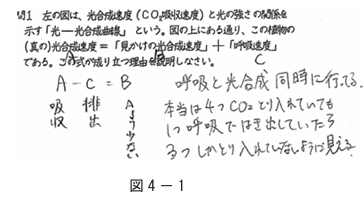 問1 左の図は、光合成速度(CO₂吸収速度)と光の強さの関係を
示す「光―光合成曲線」という。図の上にある通り、この植物の
(真の)光合成速度=「見かけの光合成速度」+「呼吸速度」
A B C
である。この式が成り立つ理由を説明しなさい。
A-C=B
吸収 排出 Aより少ない
呼吸と光合成同時に行ってる。
本当は4つCO₂とり入れていても
1つ呼吸ではき出していたら
3つしかとり入れていないように見える
図4-1